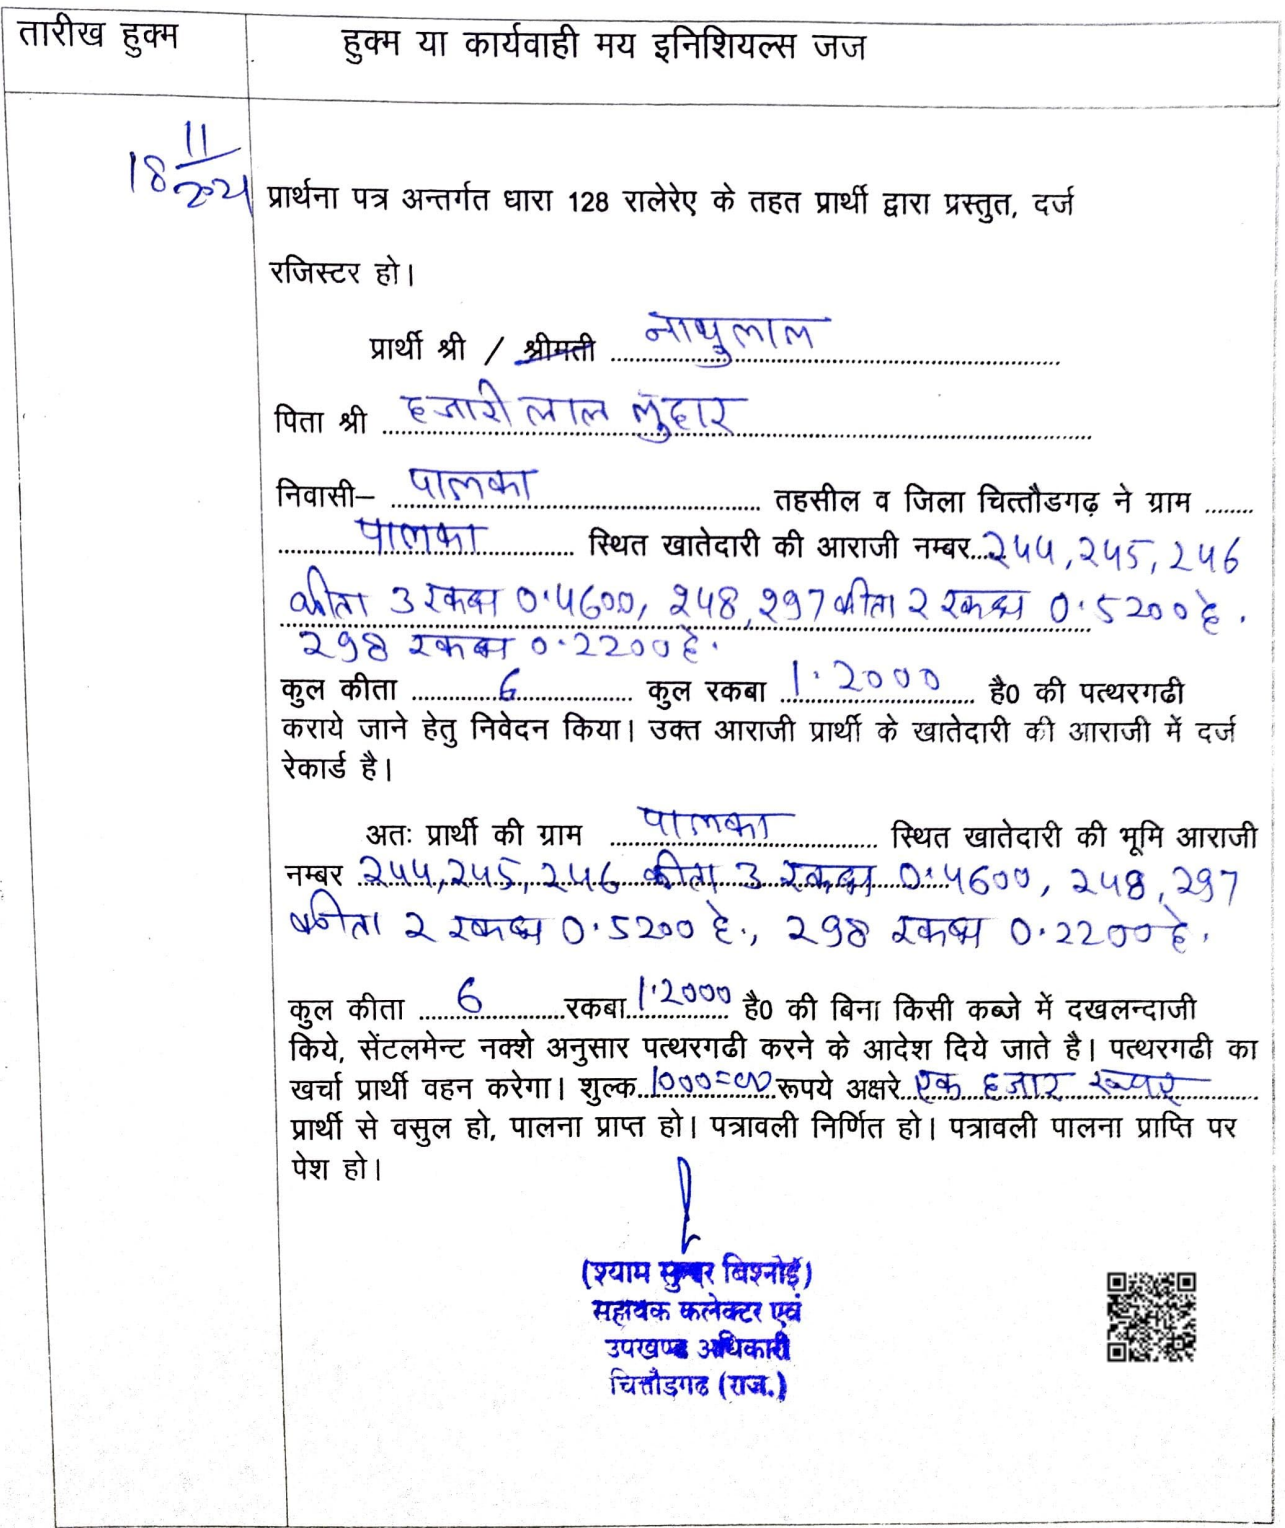 तारीख हुक्म
हुक्म या कार्यवाही मय इनिशियल्स जज
18 11/2024
प्रार्थना पत्र अन्तर्गत धारा 128 रालेरेए के तहत प्रार्थी द्वारा प्रस्तुत, दर्ज
रजिस्टर हो।
प्रार्थी श्री / श्रीमती नाथुलाल
पिता श्री हजारी लाल लुहार
निवासी– पालका तहसील व जिला चित्तौडगढ़ ने ग्राम
पालका स्थित खातेदारी की आराजी नम्बर 244, 245, 246
कीता 3 रकबा 0.4600, 248, 297 कीता 2 रकबा 0.5200 हे.
298 रकबा 0.2200 हे.
कुल कीता 6 कुल रकबा 1.2000 है0 की पत्थरगढी
कराये जाने हेतु निवेदन किया। उक्त आराजी प्रार्थी के खातेदारी की आराजी में दर्ज
रेकार्ड है।
अतः प्रार्थी की ग्राम पालका स्थित खातेदारी की भूमि आराजी
नम्बर 244, 245, 246 कीता 3 रकबा 0.4600, 248, 297
कीता 2 रकबा 0.5200 हे., 298 रकबा 0.2200 हे.
कुल कीता 6 रकबा 1.2000 है0 की बिना किसी कब्जे में दखलन्दाजी
किये, सेंटलमेन्ट नक्शे अनुसार पत्थरगढी करने के आदेश दिये जाते है। पत्थरगढी का
खर्चा प्रार्थी वहन करेगा। शुल्क 1000=00 रूपये अक्षरे एक हजार रूपए
प्रार्थी से वसुल हो, पालना प्राप्त हो। पत्रावली निर्णित हो। पत्रावली पालना प्राप्ति पर
पेश हो।
(श्याम सुन्दर बिश्नोई)
सहायक कलेक्टर एवं
उपखण्ड अधिकारी
चित्तौड़गढ (राज.)